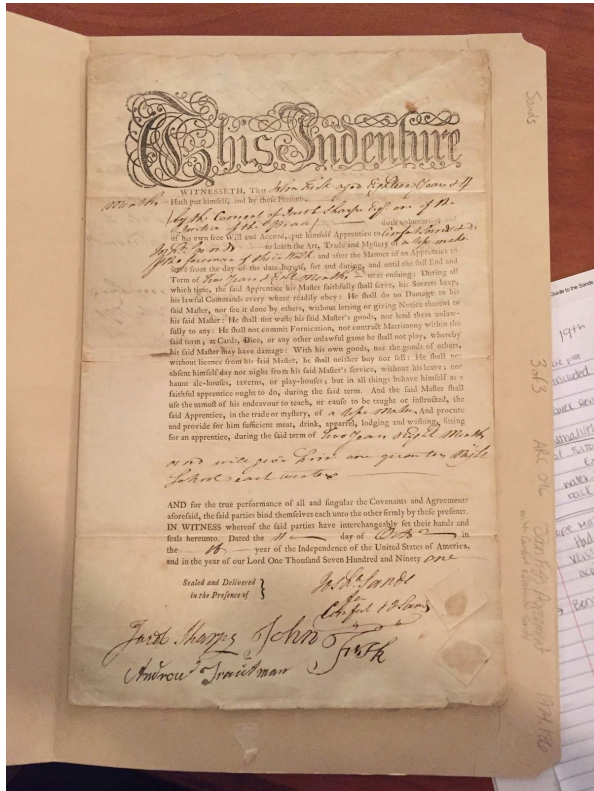 This Indenture
WITNESSETH, That John Fisk aged Eighteen Years & 4
Months Hath put himself, and by these Presents
(by the Consent of Jacob Sharpe Esqr. one of the
Justices of the Peace) doth voluntarily and
of his own free Will and Accord, put himself Apprentice to Comfort Sands &
Josha. Sands to learn the Art, Trade and Mystery of a rope maker
and after the Manner of an Apprentice to
serve from the day of the date hereof, for and during, and until the full End and
Term of Two Years & Eight Months next ensuing: During all
which time, the said Apprentice his Master faithfully shall serve, his Secrets keep,
his lawful Commands every where readily obey: He shall do no Damage to his
said Master, nor see it done by others, without letting or giving Notice thereof to
his said Master: He shall not waste his said Master's goods, nor lend them unlaw-
fully to any: He shall not commit Fornication, nor contract Matrimony within the
said term; at Cards, Dice, or any other unlawful game he shall not play, whereby
his said Master may have damage: With his own goods, nor the goods of others,
without licence from his said Master, he shall neither buy nor sell: He shall not
absent himself day nor night from his said Master's service, without his leave; nor
haunt ale-houses, taverns, or play-houses; but in all things behave himself as a
faithful apprentice ought to do, during the said term. And the said Master shall
use the utmost of his endeavour to teach, or cause to be taught or instructed, the
said Apprentice, in the trade or mystery, of a Rope Maker And procure
and provide for him sufficient meat, drink, apparel, lodging and washing, fitting
for an apprentice, during the said term of Two Years & Eight Months
and will give him one quarter Night
School each winter
AND for the true performance of all and singular the Covenants and Agreements
aforesaid, the said parties bind themselves each unto the other firmly by these presents.
IN WITNESS whereof the said parties have interchangeably set their hands and
seals hereunto. Dated the 11 day of Octr. in
the 16 year of the Independence of the United States of America,
and in the year of our Lord One Thousand Seven Hundred and Ninety one
Sealed and Delivered
in the Presence of
Josha. Sands
for
Comfort & J Sands
Jacob Sharpe John Fisk
Andrew Trautman
Sands
3 of 3 ARC 016 John Fisk Agreement 1974.186
with Comfort & Joshua Sands
Guide to the Sands
19th
included